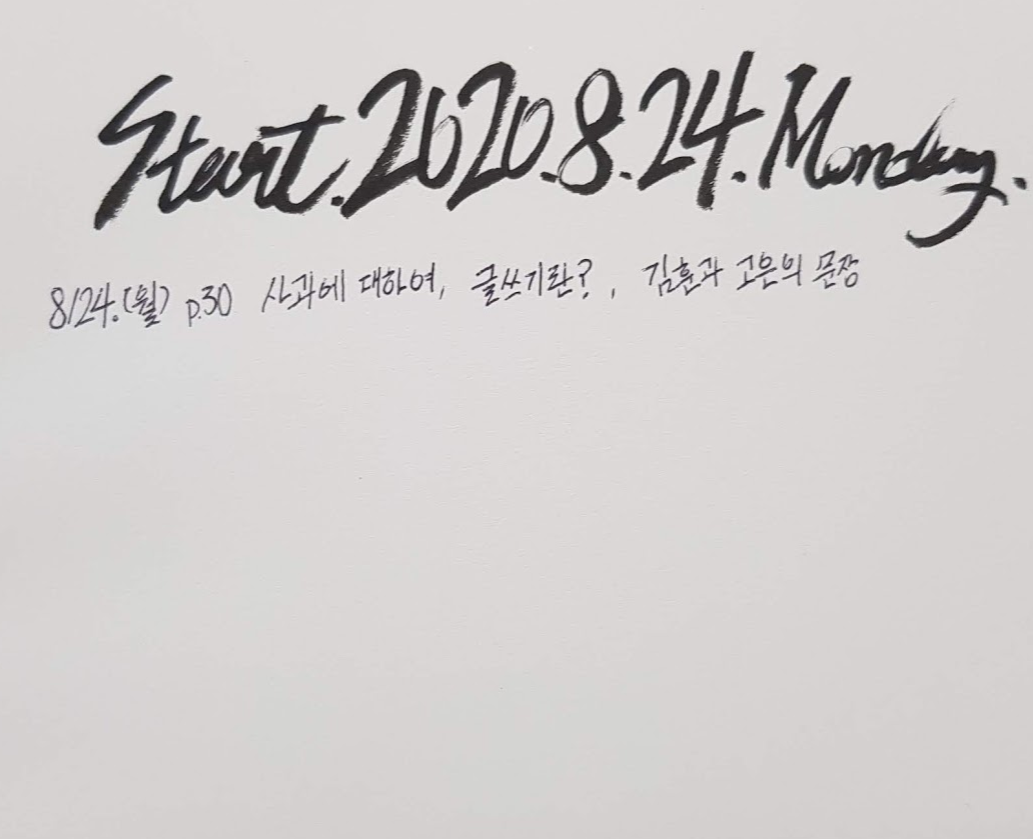 Start.2020.8.24.Monday.
8/24.(월) p.30 사과에 대하여, 글쓰기란?, 김훈과 고은의 문장